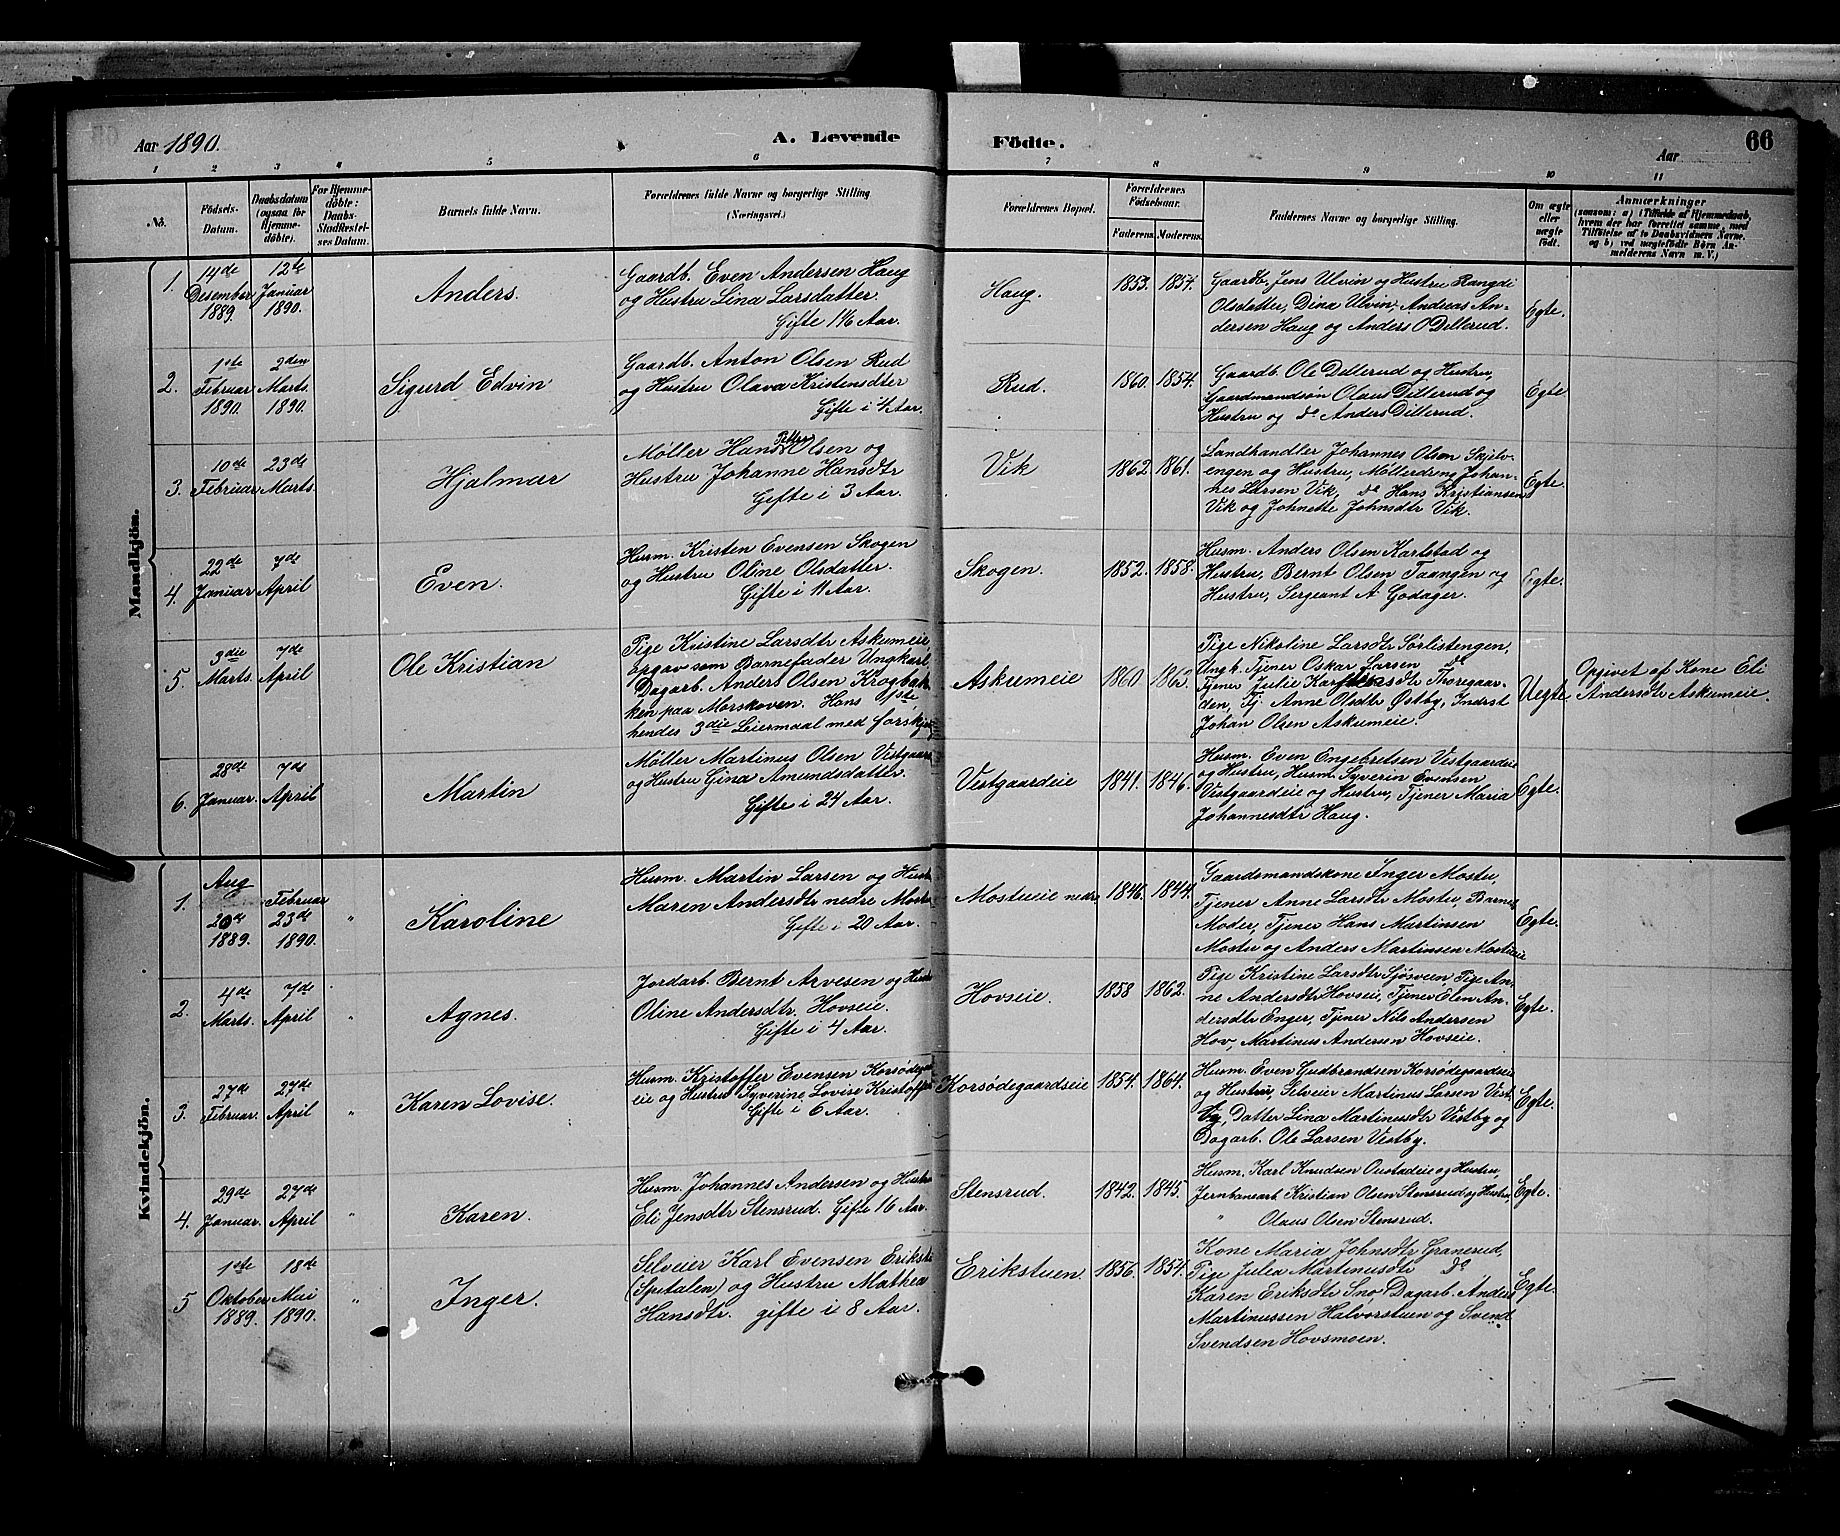 Aar 1890.
A. Levende
Födte.
66
Aar
1 2 3 4 5 6 7 8 9 10 11
No.
Födsels-
Datum.
Daabsdatum
(ogsaa for
Hjemme-
döbte).
For Hjemme-
döbte:
Daabs-
Stadfæstel-
ses Datum.
Barnets fulde Navn.
Forældrenes fulde Navne og borgerlige Stilling
(Næringsvei.)
Forældrenes Bopæl.
Forældrenes
Födselsaar.
Faderens. Moderens.
Faddernes Navne og borgerlige Stilling.
Om ægte
eller
uægte
födt.
Anmærkninger
(saasom: a) i Tilfælde af Hjemmedaab,
hvem der har forrettet samme, med
Tilföielse af to Daabsvidners Navne,
og b) ved uægtefödte Börn An-
melderens Navn m. V.)
Mandkjön.
1.
14de
Desember
1889.
12te
Januar
1890.
Anders.
Gaardb. Even Andersen Haug
og Hustru Lina Larsdatter.
Gifte 1½ Aar.
Haug.
1853. 1854.
Gaardb. Jens Ulvin og Hustru Rangdi
Olsdatter, Dina Ulvin, Andreas An-
dersen Haug og Anders O Dillerud.
Egte.
2.
1ste
Februar
1890.
2den
Marts.
1890.
Sigurd Edvin
Gaardb. Anton Olsen Rud
og Hustru Olava Kristensdter
Gifte i ¼ Aar.
Rud.
1860. 1854.
Gaardb. Ole Dillerud og Hustru,
Gaardmandsøn Olaus Dillerud og
Hustru og do Anders Dillerud.
Egte
3.
10de
Februar
23de
Marts.
Hjalmar
Møller Hans Petter Olsen og
Hustru Johanne Hansdtr
Gifte i 3 Aar.
Vik
1862 1861.
Landhandler Johannes Olsen Skjelv-
engen og Hustru, Møllerdreng Johan-
nes Larsen Vik, do Hans Kristiansen
Vik og Johnette Johnsdtr Vik.
Egte.
4.
22de
Januar
7de
April
Even.
Husm. Kristen Evensen Skogen
og Hustru Oline Olsdatter.
Gifte i 11 Aar.
Skogen.
1852. 1858.
Husm. Anders Olsen Karlstad og
Hustru, Bernt Olsen Taangen og
Hustru, Sergeant A Godager.
Egte.
5.
3die
Marts.
7de
April
Ole Kristian
Pige Kristine Larsdtr Askumeie,
opgav som Barnefader Ungkarl,
Dagarb. Anders Olsen Krogbak-
ken paa Morskoven. Hans 1ste,
hendes 3die Leiermaal med forskj
Askumeie
1860 1863.
Pige Nikoline Larsdtr Sørlistengen,
Ungk. Tjener Oskar Larsen do
Tjener Julie Karstensdtr Thoregaar-
den, Tj. Anne Olsdtr Østby, Indrst
Johan Olsen Askumeie.
Uegte
Opgivet af Kone Eli
Andersdtr Askumeie.
6.
28de
Januar.
7de
April
Martin
Møller Martinus Olsen Vestgaard
og Hustru Gina Amundsdatter.
Gifte i 24 Aar.
Vestgaardeie
1841. 1846.
Husm. Even Engebretsen Vestgaardeie
og Hustru, Husm. Syverin Evensen
Vestgaardeie og Hustru, Tjener Maria
Johannesdtr Haug.
Egte.
Kvindekjön.
1.
Aug
20de
1889.
Februar
23de
1890.
"
Karoline
Husm. Martin Larsen og Hustr
Maren Andersdtr nedre Mostu
Gifte i 20 Aar.
Mostueie nedre
1846. 1844.
Gaardsmandskone Inger Mostu,
Tjener Anne Larsdtr Mostu, Barnets
Moder, Tjener Hans Martinsen
Mostu og Anders Martinsen Mostueie
Egte.
2.
4de
Marts.
7de
April
"
Agnes.
Jordarb. Bernt Arvesen og Hustru
Oline Andersdtr, Hovseie.
Gifte i 4 Aar.
Hovseie.
1858 1862.
Pige Kristine Larsdtr Sjøsveen, Pige An-
ne Andersdtr Hovseie, Tjener Elen An-
dersdtr Enger, Tjener Nils Andersen
Hov, Martinus Andersen Hovseie.
Egte.
3.
27de
Februar.
27de
April
"
Karen Lovise.
Husm. Kristoffer Evensen Korsödegaards
eie og Hustru Syverine Lovise Kristoffer
Gifte i 6 Aar.
Korsödegaardseie
1854. 1864.
Husm. Even Gudbrandsen Korsödegaardseie
og Hustru, Selveier Martinus Larsen Vest-
by, Datter Lina Martinusdtr Vestby og
Dagarb. Ole Larsen Vestby.
Egte.
4.
29de
Januar.
27de
April
"
Karen.
Husm. Johannes Andersen og Hustru
Eli Jensdtr Stensrud. Gifte 16 Aar.
Stensrud.
1842. 1845.
Husm. Karl Knudsen Oustadeie og Hustru
Jernbanearb. Kristian Olsen Stensrud og Hustru,
" Olaus Olsen Stensrud.
Egte.
5
1ste
Oktober
1889.
18de
Mai
1890.
"
Inger.
Selveier Karl Evensen Erikstu
(Spitalen) og Hustru Mathea
Hansdtr. gifte i 8 Aar.
Erikstuen.
1856. 1854.
Kone Maria Johnsdtr Granerud,
Pige Julea Martinusdtr Do
Karen Eriksdtr Sno Dagarb. Anders
Martinussen Halvorstuen og Svend
Svendsen Hovsmoen.
Egte.